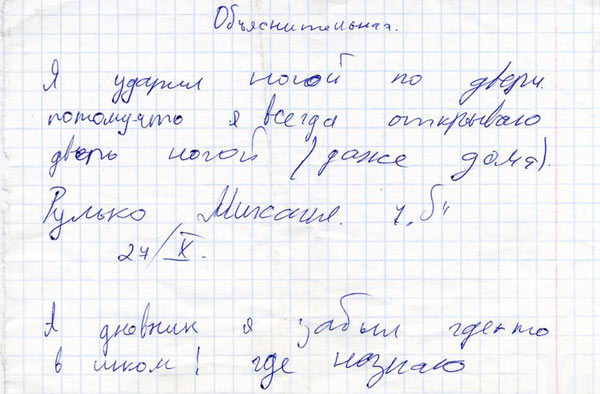 Объяснительная.
Я ударил ногой по двери.
потомучто я всегда открываю
дверь ногой (даже дома).
Рулько Михаил. 7 „Б"
27/X.
А дневник я забыл где-то
в школ! где незнаю